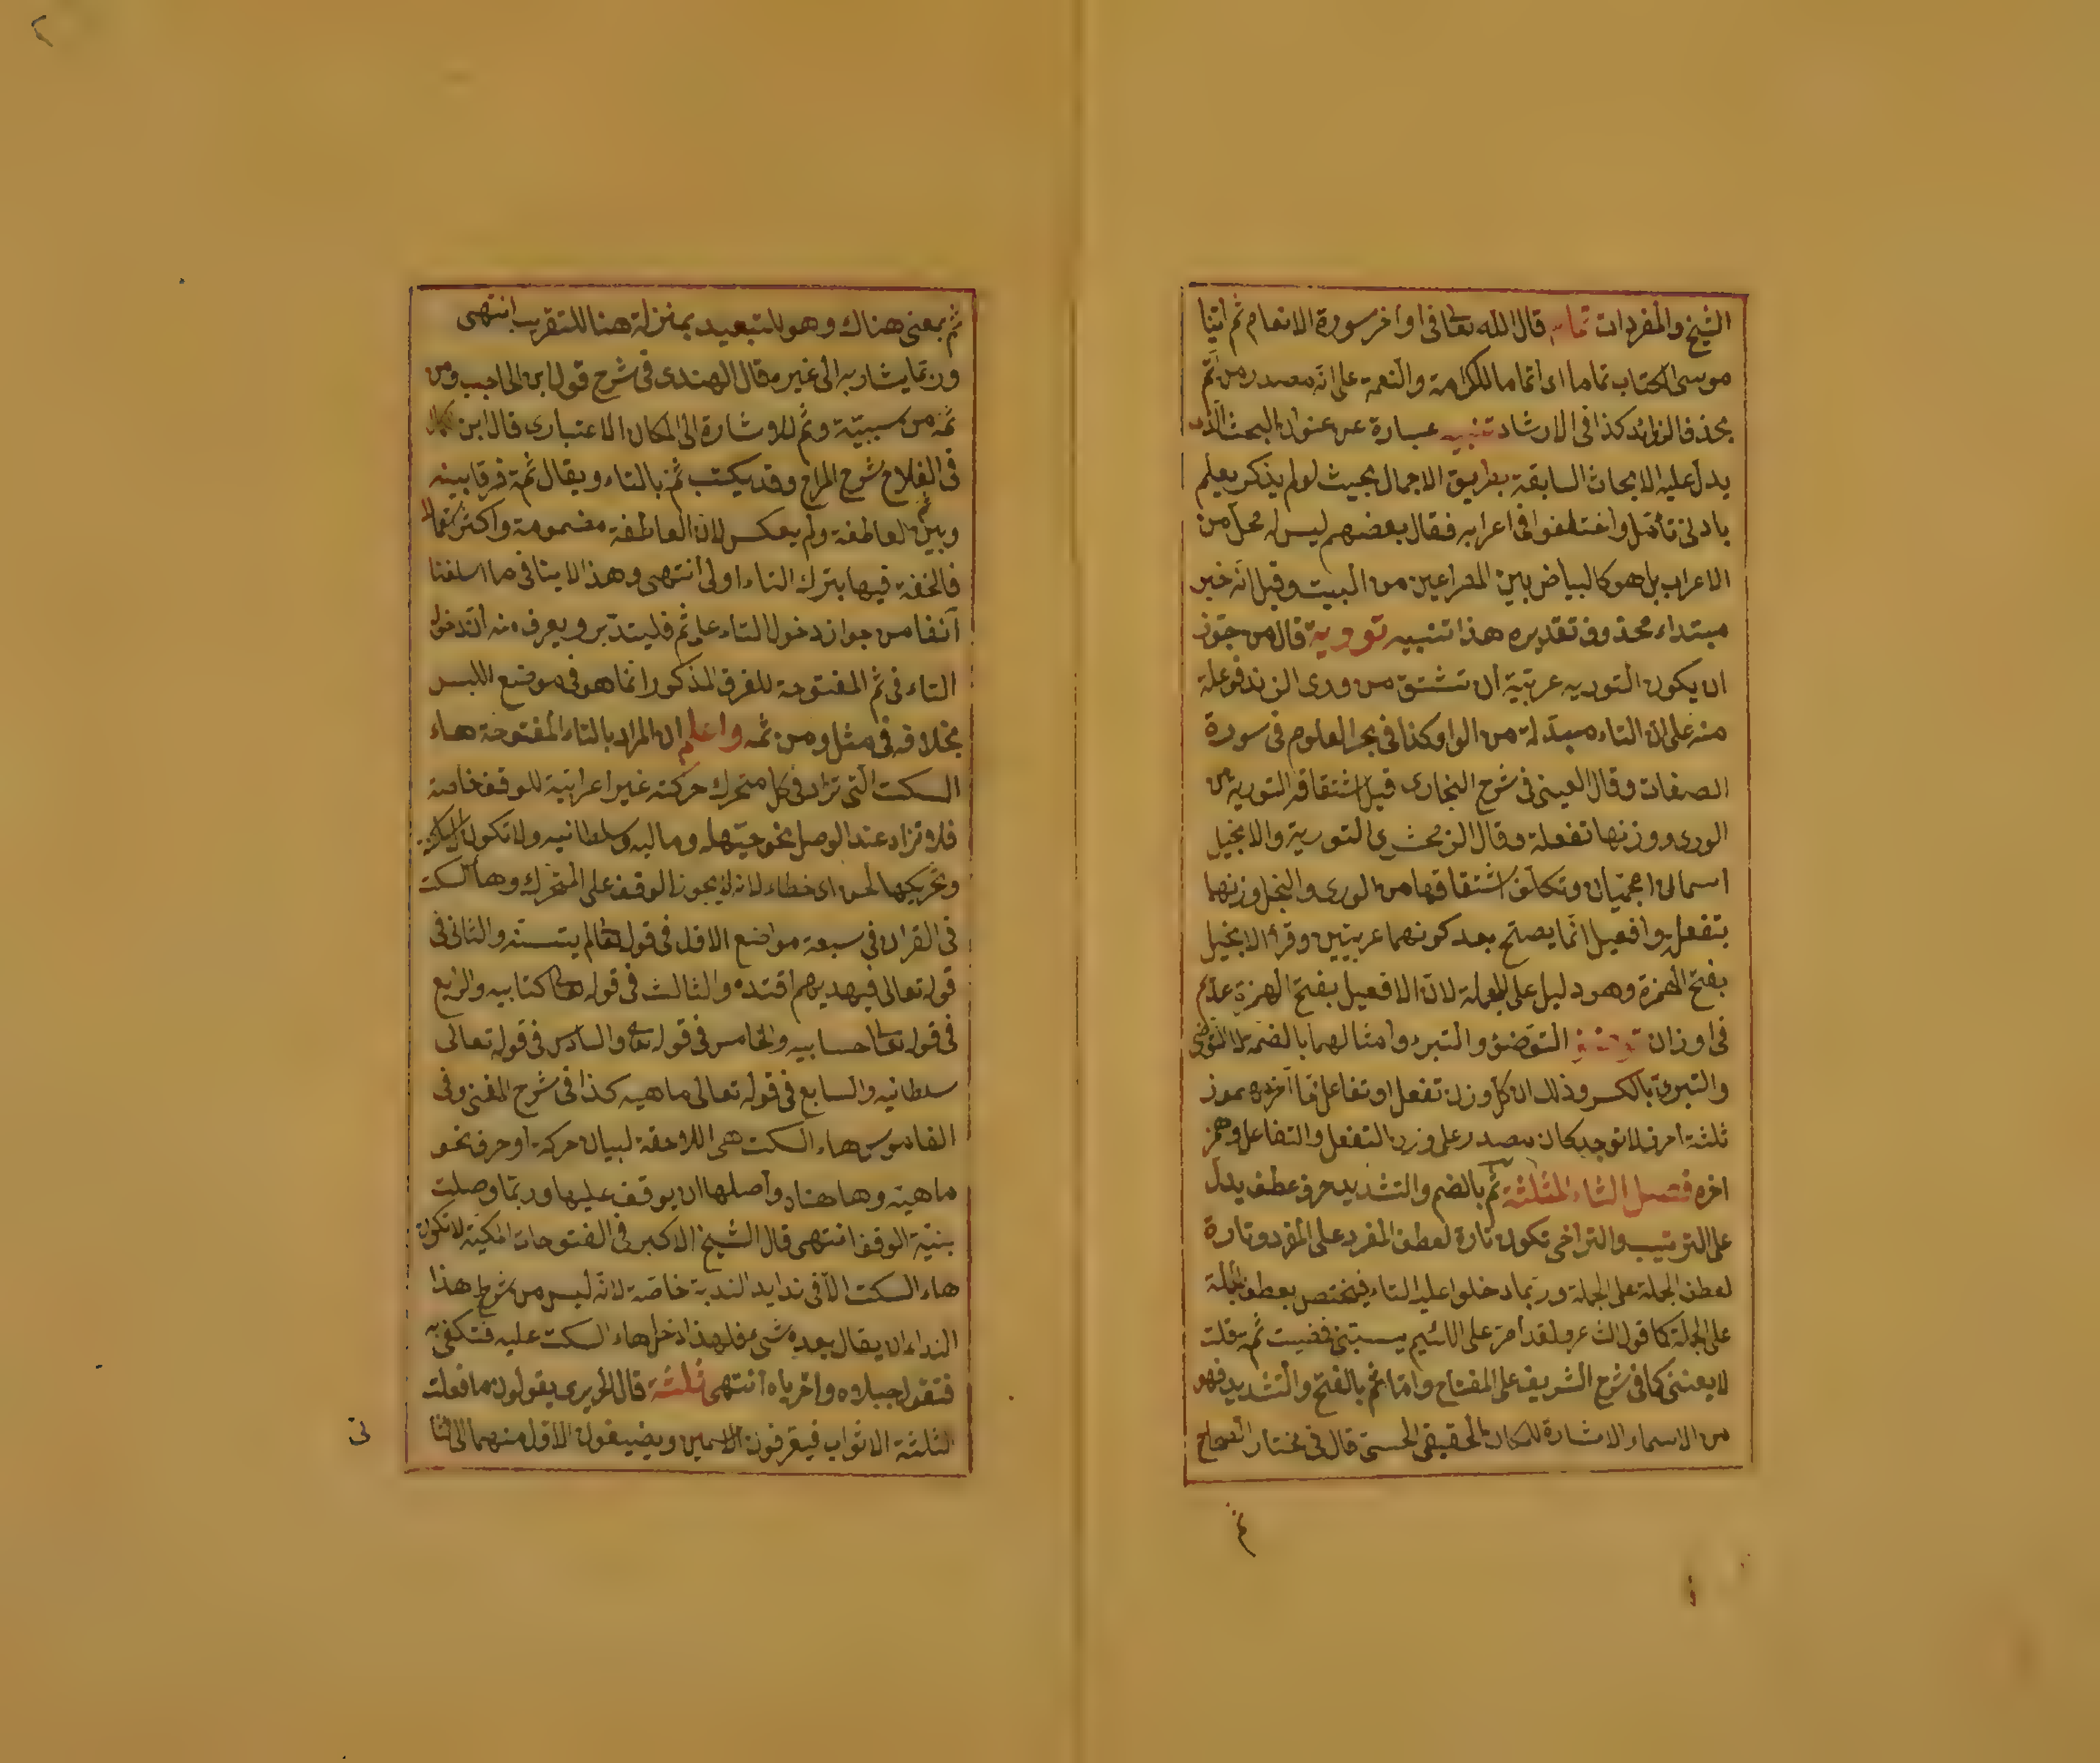 الشيخ والمفردات تماما قال الله تعا فى اواخر سورة الانعام ثم اتينا
موسى الكتاب تماما اى اتماما للكرامة والنعمة على انه مصدر من تم
بحذف الزوائد كذا فى الارشاد تنبيه عبارة عن عنوان البحث الذى
يدل عليه الابحاث السابقة بطريق الاجمال بحيث لو لم يذكر يعلم
بادنى تأمل واختلفوا فى اعرابه فقال بعضهم ليس له محل من
الاعراب بل هو كالبياض بين المصراعين من البيت وقيل انه خبر
مبتداء محذوف تقديره هذا تنبيه تورية قال من جوز
ان يكون التوريه عربية ان تشتق من ورى الزند فوعلة
منه على ان التاء مبدلة من الواو كذا فى بحر العلوم فى سورة
الصفات وقال العينى فى شرح البخارى قيل اشتقاقه التورية من
الورى ووزنها تفعلة وقال الزمخشرى التورية والانجيل
اسمان اعجميان وتكلف اشتقاقهما من الورى والنجل ووزنهما
بتفعلة وافعيل انما يصلح بعد كونهما عربيين وقرأ الانجيل
بفتح الهمزة وهو دليل على العجمة لان الافعيل بفتح الهمزة عديم
فى اوزان التوضئ والتبرء وامثالهما بالضمة لا التوضى
والتبرئ بالكسر وذلك ان كل وزن تفعل او تفاعل مما آخره مهموز
ثلثة احرف لا توجد كان مصدر على وزن التفعل والتفاعل وهمز
اخره فصل الثاء المثلثة ثم بالضم والتشديد حرف عطف يدل
على الترتيب والتراخى تكون تارة لعطف المفرد على المفرد وتارة
لعطف الجملة على الجملة وربما دخلوا عليها التاء فيختص بعطف الجملة
على الجملة كما قول الشاعر ولقد أمر على اللئيم يسبنى فمضيت ثمة قلت
لا يعننى كما فى شرح الشريف على المفتاح واما ثم بالفتح والتشديد فهو
من الاسماء الاشارة للمكان الحقيقى الحسى قال فى مختار الصحاح
ثم
ثم بمعنى هناك وهو للتبعيد بمنزلة هنا للتقريب انتهى
وربما يشار به الى غيره قال الهندى فى شرح قول ابن الحاجب ومن
ثمه من سببية وثم للاشارة الى المكان الاعتبارى قال ابن كمال
فى الفلاح شرح المراح وقد يكتب ثم بالتاء ويقال ثمة فرقا بينه
وبين ثم العاطفة ولم يعكس لان العاطفة مضمومة واكثر استعمالا
فالخفة فيها بترك التاء اولى انتهى وهذا لا ينافى ما اسلفنا
آنفا من جواز دخول التاء على ثم فليتدبر ويعرف منه ان دخول
التاء فى ثم المفتوحة للفرق المذكور انما هو فى موضع اللبس
بخلافه فى مثل ومن ثمه واعلم ان المراد بالتاء المفتوحة هاء
السكت التى تزاد فى كل متحرك حركته غير اعرابية للوقف خاصة
فلا تزاد عند الوصل نحو حيهله وماليه وسلطانيه ولا تكون الا ساكنة
وتحريكها لحن اى خطاء لانه لا يجوز الوقف على المتحرك وهاء السكت
فى القران فى سبعة مواضع الاول فى قوله تعا لم يتسنه والثانى فى
قوله تعالى فبهديهم اقتده والثالث فى قوله تعا كتابيه والرابع
فى قوله تعا حسابيه والخامس فى قوله تعا والسادس فى قوله تعالى
سلطانيه والسابع فى قوله تعالى ماهيه كذا فى شرح المغنى وفى
القاموس هاء السكت هى اللاحقة لبيان حركة او حرف نحو
ماهيه وها هناه وأصلها ان يوقف عليها وربما وصلت
بنية الوقف انتهى قال الشيخ الاكبر فى الفتوحات المكية لا تكون
هاء السكت الا فى نداء الندبة خاصة لانه ليس من شرط هذا
النداء ان يقال بعده شىء فلهذا ادخل هاء السكت عليه فتكفى به
فتقول جبلاه واخرباه انتهى ثلثة قال الحريرى يقولون ما فعلت
الثلثة الاثواب فيعرفون الاسمين ويضيفون الاول منهما الى الثا
نى